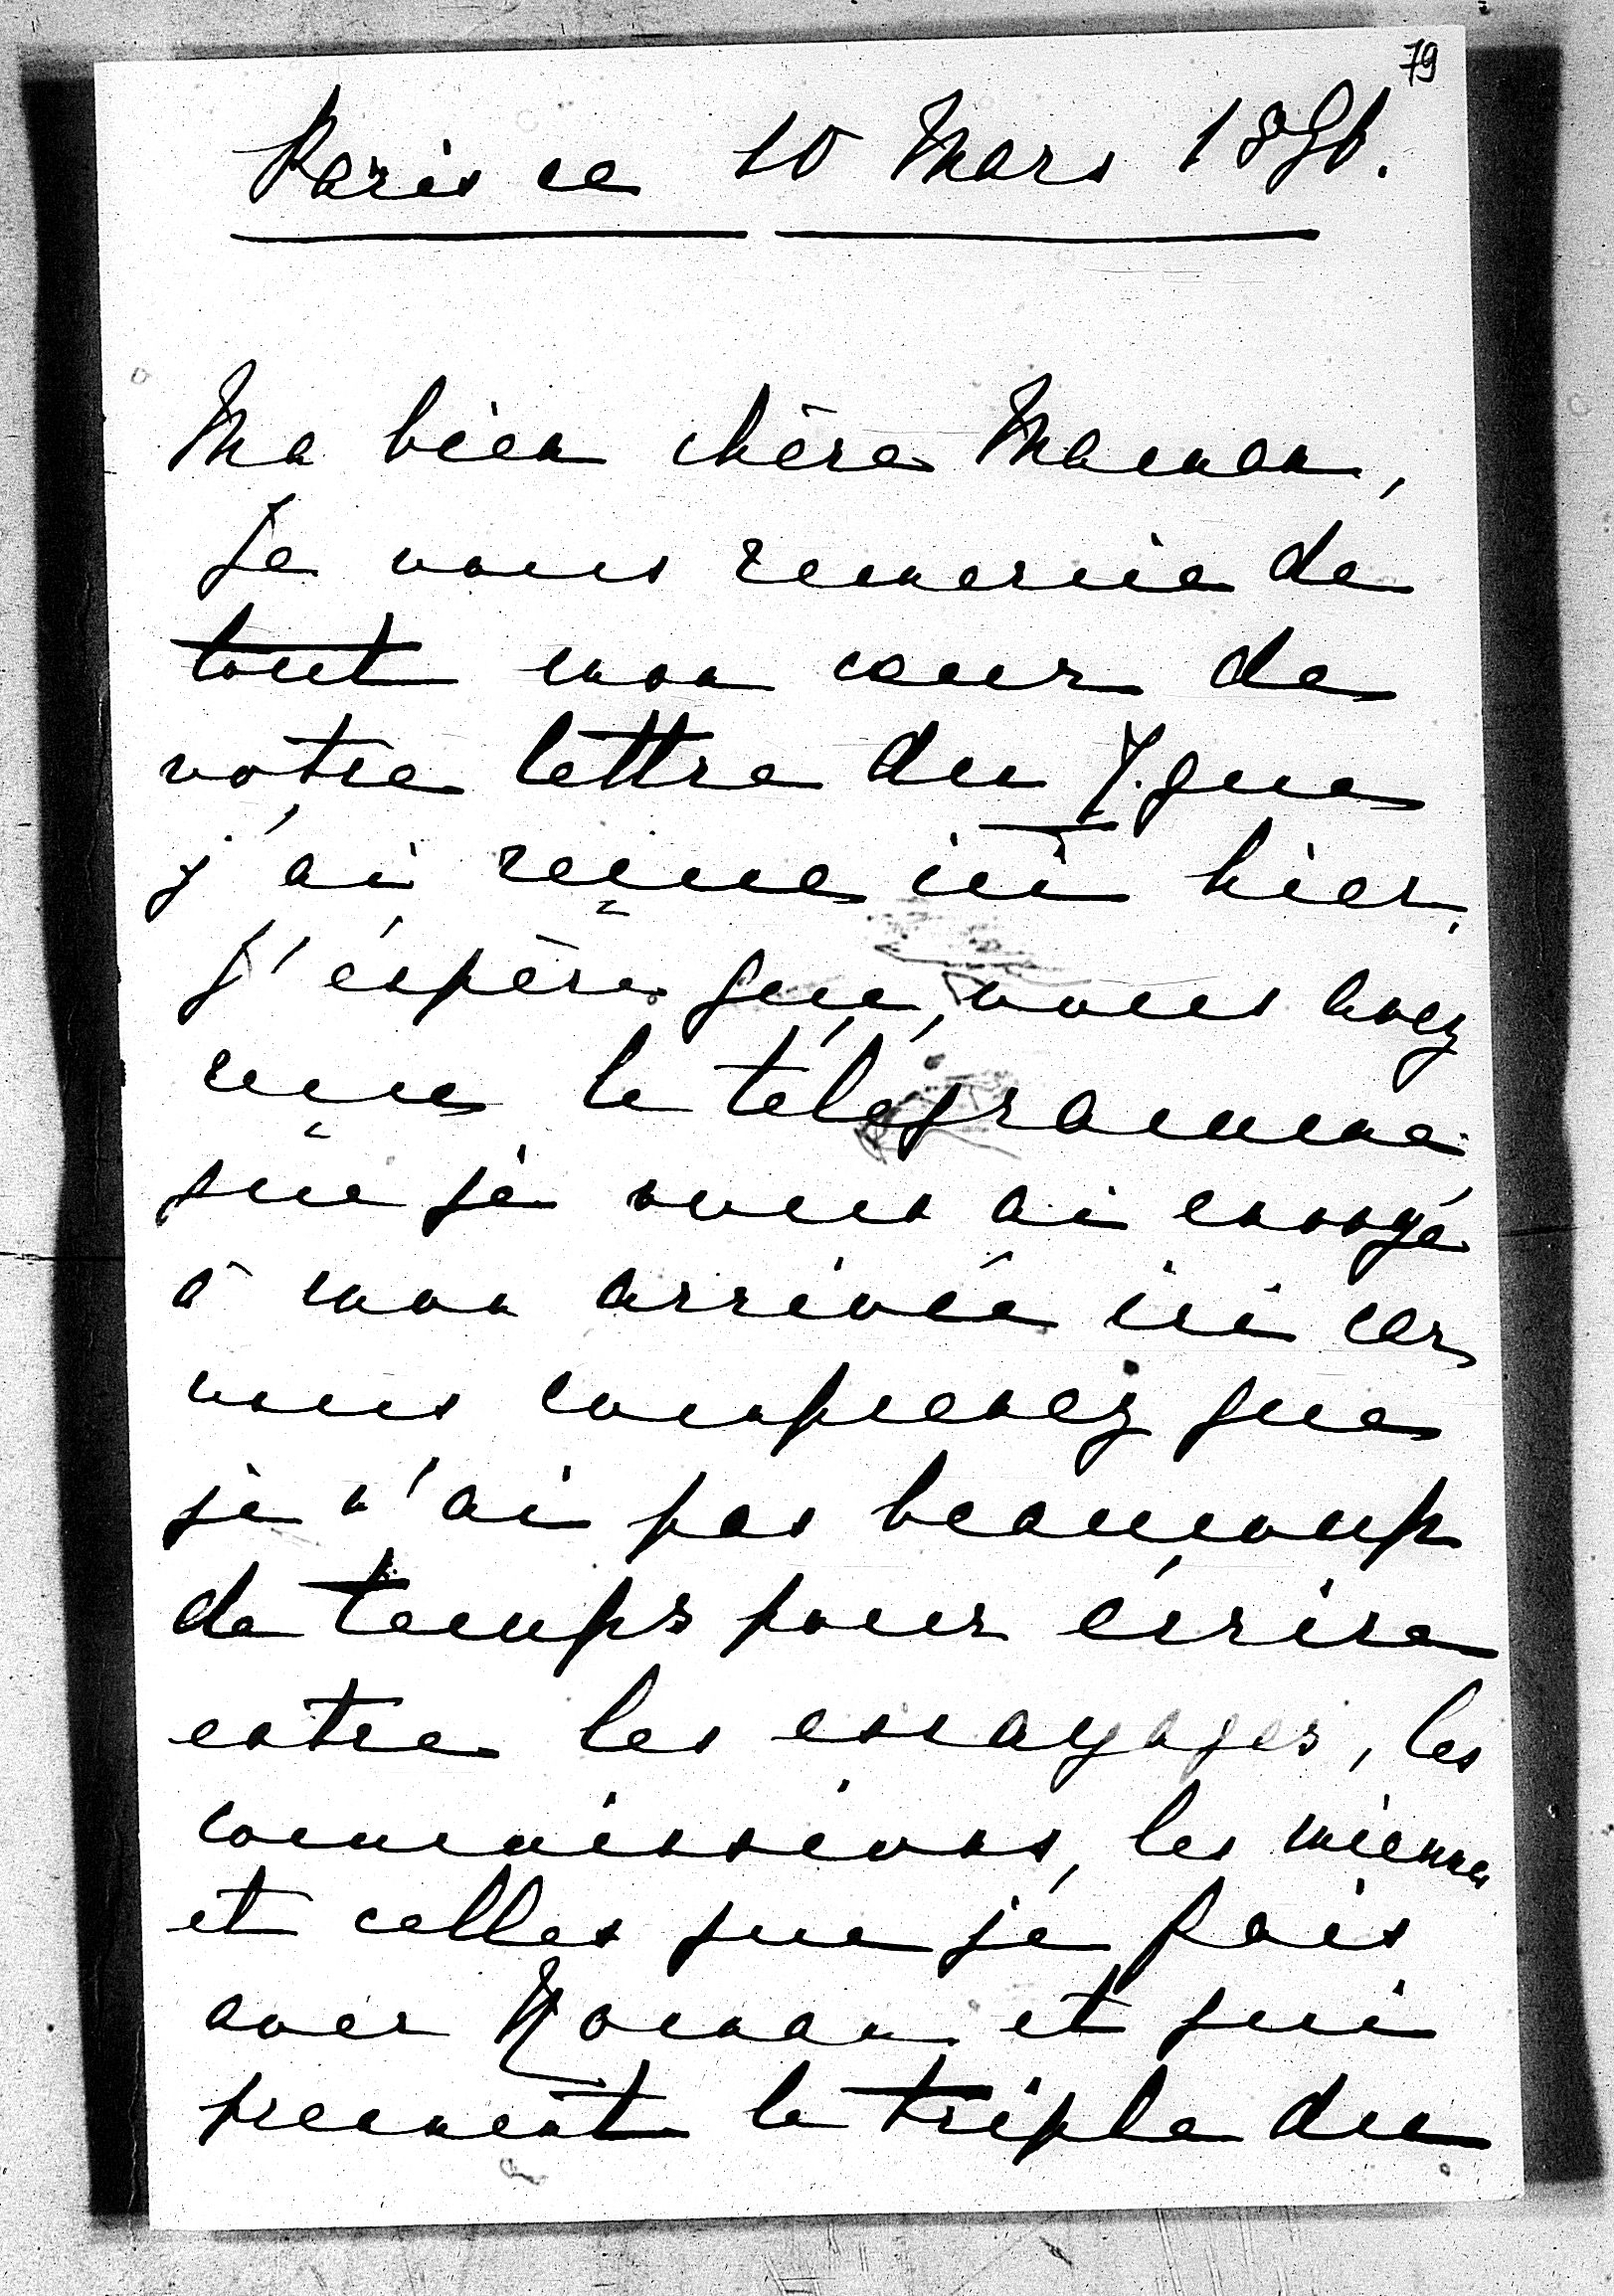 79
Paris ce 10 Mars 1896.
Ma bien chère Maman,
Je vous remercie de
tout mon cœur de
votre lettre du 7. que
j'ai reçue ici hier.
J'éspère que, vous avez
reçue le télégramme
que je vous ai envoyé
à mon arrivée ici car
vous comprenez que
je n'ai pas beaucoup
de temps pour écrire
entre les essayages, les
commissions, les miennes
et celles que je fais
avec Maman et qui
prennent le triple du